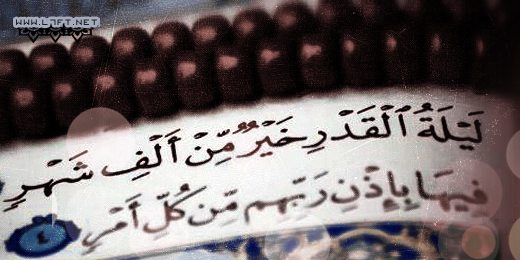 WWW.L7FT.NET
لَيْلَةُ ٱلْقَدْرِ خَيْرٌ مِّنْ أَلْفِ شَهْرٍ
فِيهَا بِإِذْنِ رَبِّهِم مِّن كُلِّ أَمْرٍ ٤